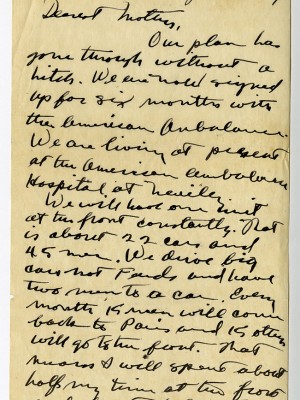 Dearest Mother,
Our plan has
gone through without a
hitch. We are now signed
up for six months with
the American Ambulance.
We are living at present
at the American Ambulance
Hospital, at Neuilly.
We will have our unit
at the front constantly. That
is about 22 cars and
45 men. We drive big
cars not Fords and have
two men to a car. Every
month 15 men will come
back to Paris and 15 others
will go to the front. That
means I will spend about
half my time at the front